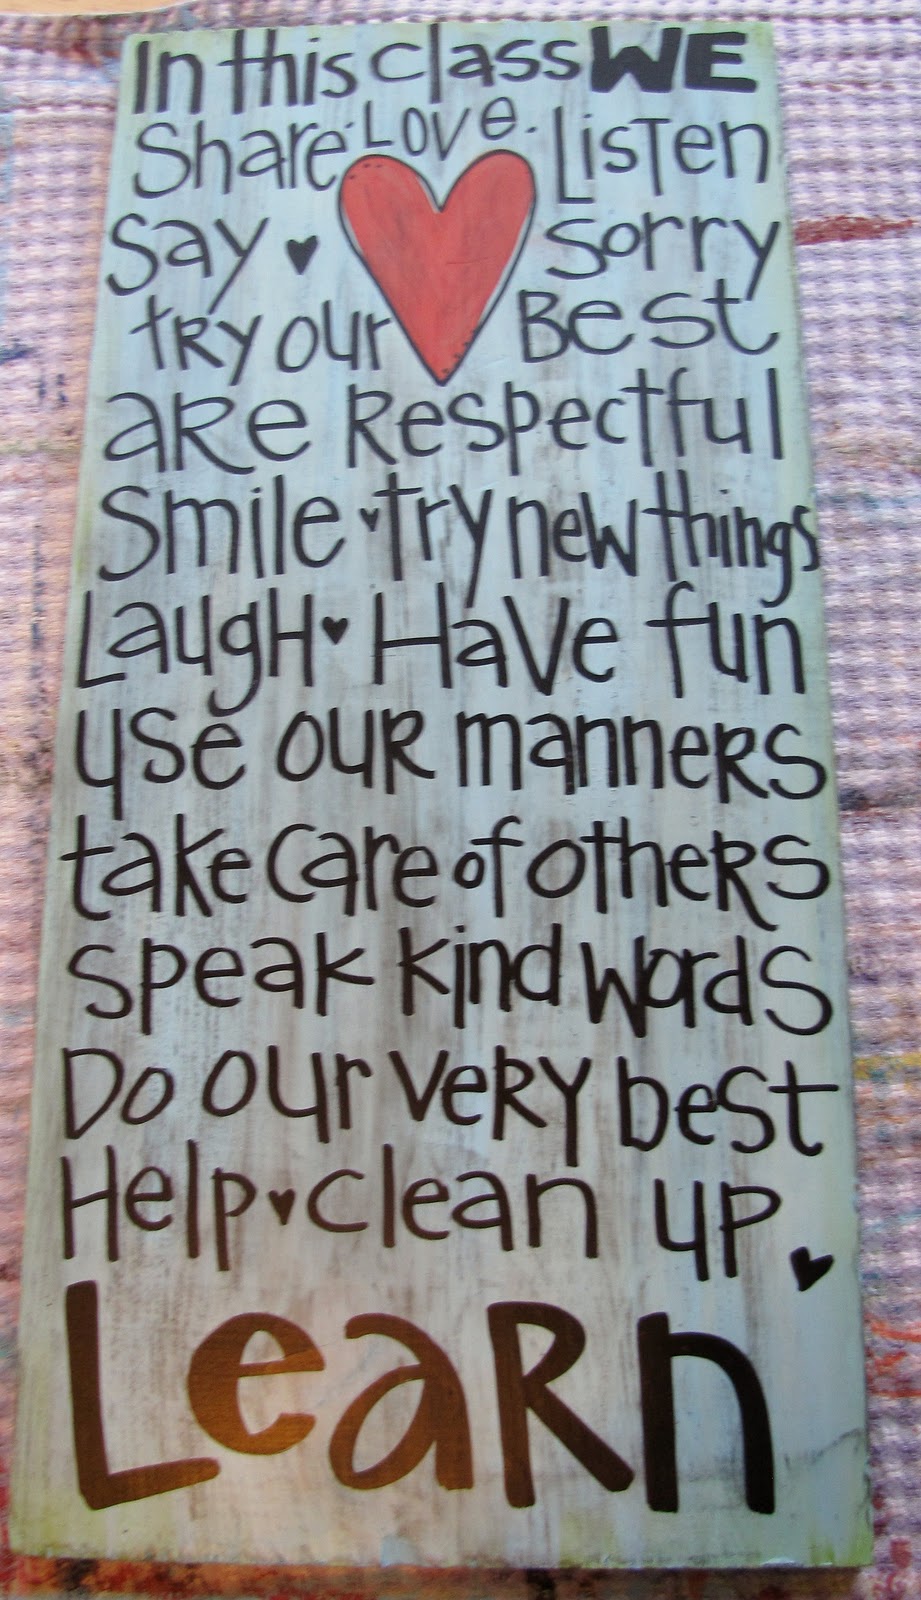 In this class WE
Share Love Listen
Say Sorry
tRY our Best
aRe Respectful
Smile try new things
LaugH Have fun
use ouR manneRs
take care of otheRs
speak kind words
Do our veRy best
Help clean up
LeaRn